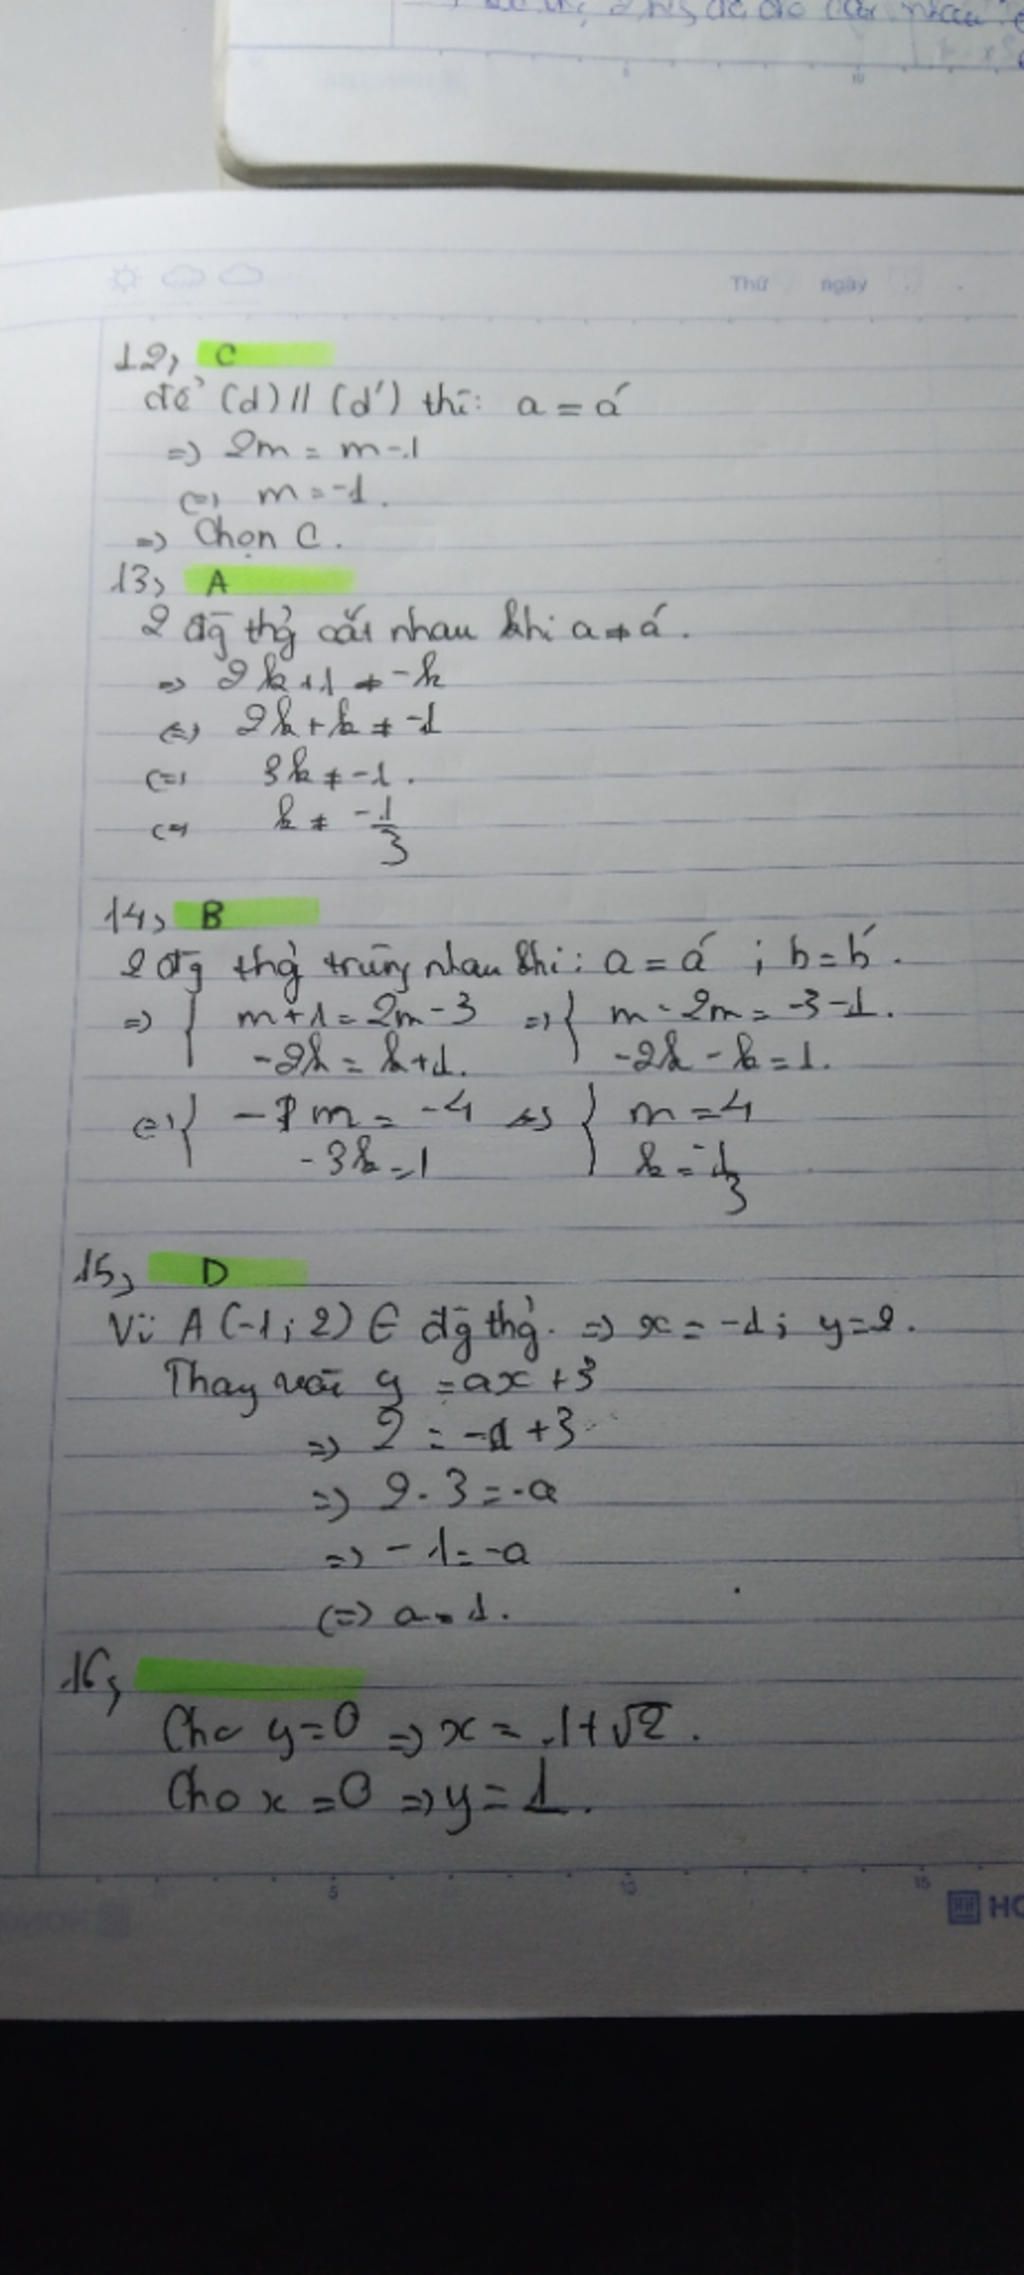 Thứ ngày
12, C
để (d) // (d') thì: a = a'
=> 2m = m-1
<=> m = -1.
=> Chọn C.
13, A
2 đg thg cắt nhau khi a ≠ a'.
=> 2k+1 ≠ -k
<=> 2k + k ≠ -1
<=> 3k ≠ -1.
<=> k ≠ -1/3
14, B
2 đg thg trùng nhau khi: a = a' ; b = b'.
=> { m+1 = 2m-3 => { m - 2m = -3-1.
-2k = k+1. -2k - k = 1.
<=> { -1m = -4 <=> { m = 4
-3k = 1 k = -1/3
15, D
Vì A (-1; 2) ∈ đg thg. => x = -1; y = 2.
Thay vào y = ax + 3
=> 2 = -a + 3
=> 2 - 3 = -a
=> -1 = -a
<=> a = 1.
16,
Cho y = 0 => x = -1+√2.
Cho x = 0 => y = 1.
5 10 15
HO